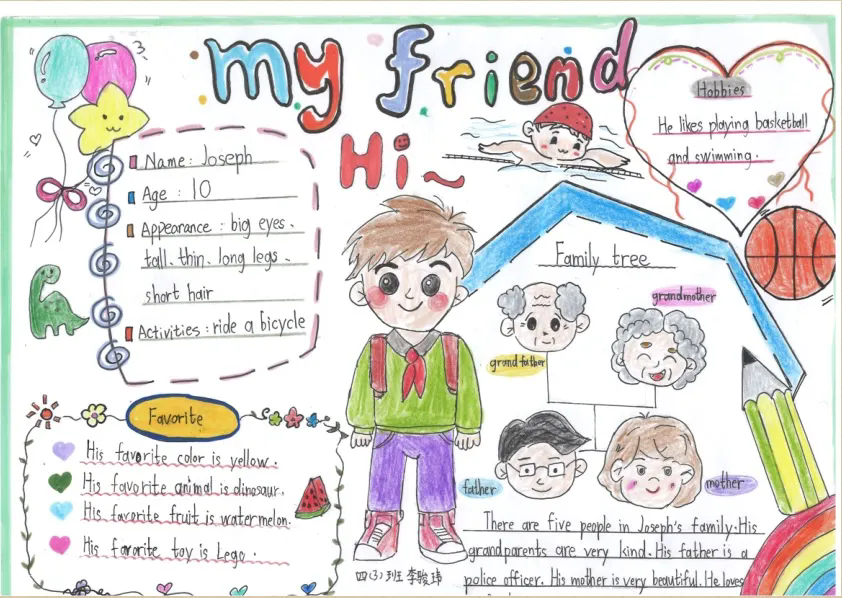 my friend
Hi~
Name: Joseph
Age: 10
Appearance: big eyes、
tall、thin、long legs、
short hair
Activities: ride a bicycle
Hobbies
He likes playing basketball
and swimming.
Family tree
grandmother
grandfather
father
mother
Favorite
His favorite color is yellow.
His favorite animal is dinosaur.
His favorite fruit is watermelon.
His favorite toy is Lego.
There are five people in Joseph's family. His
grandparents are very kind. His father is a
police officer. His mother is very beautiful. He loves
四(3)班 李骏玮